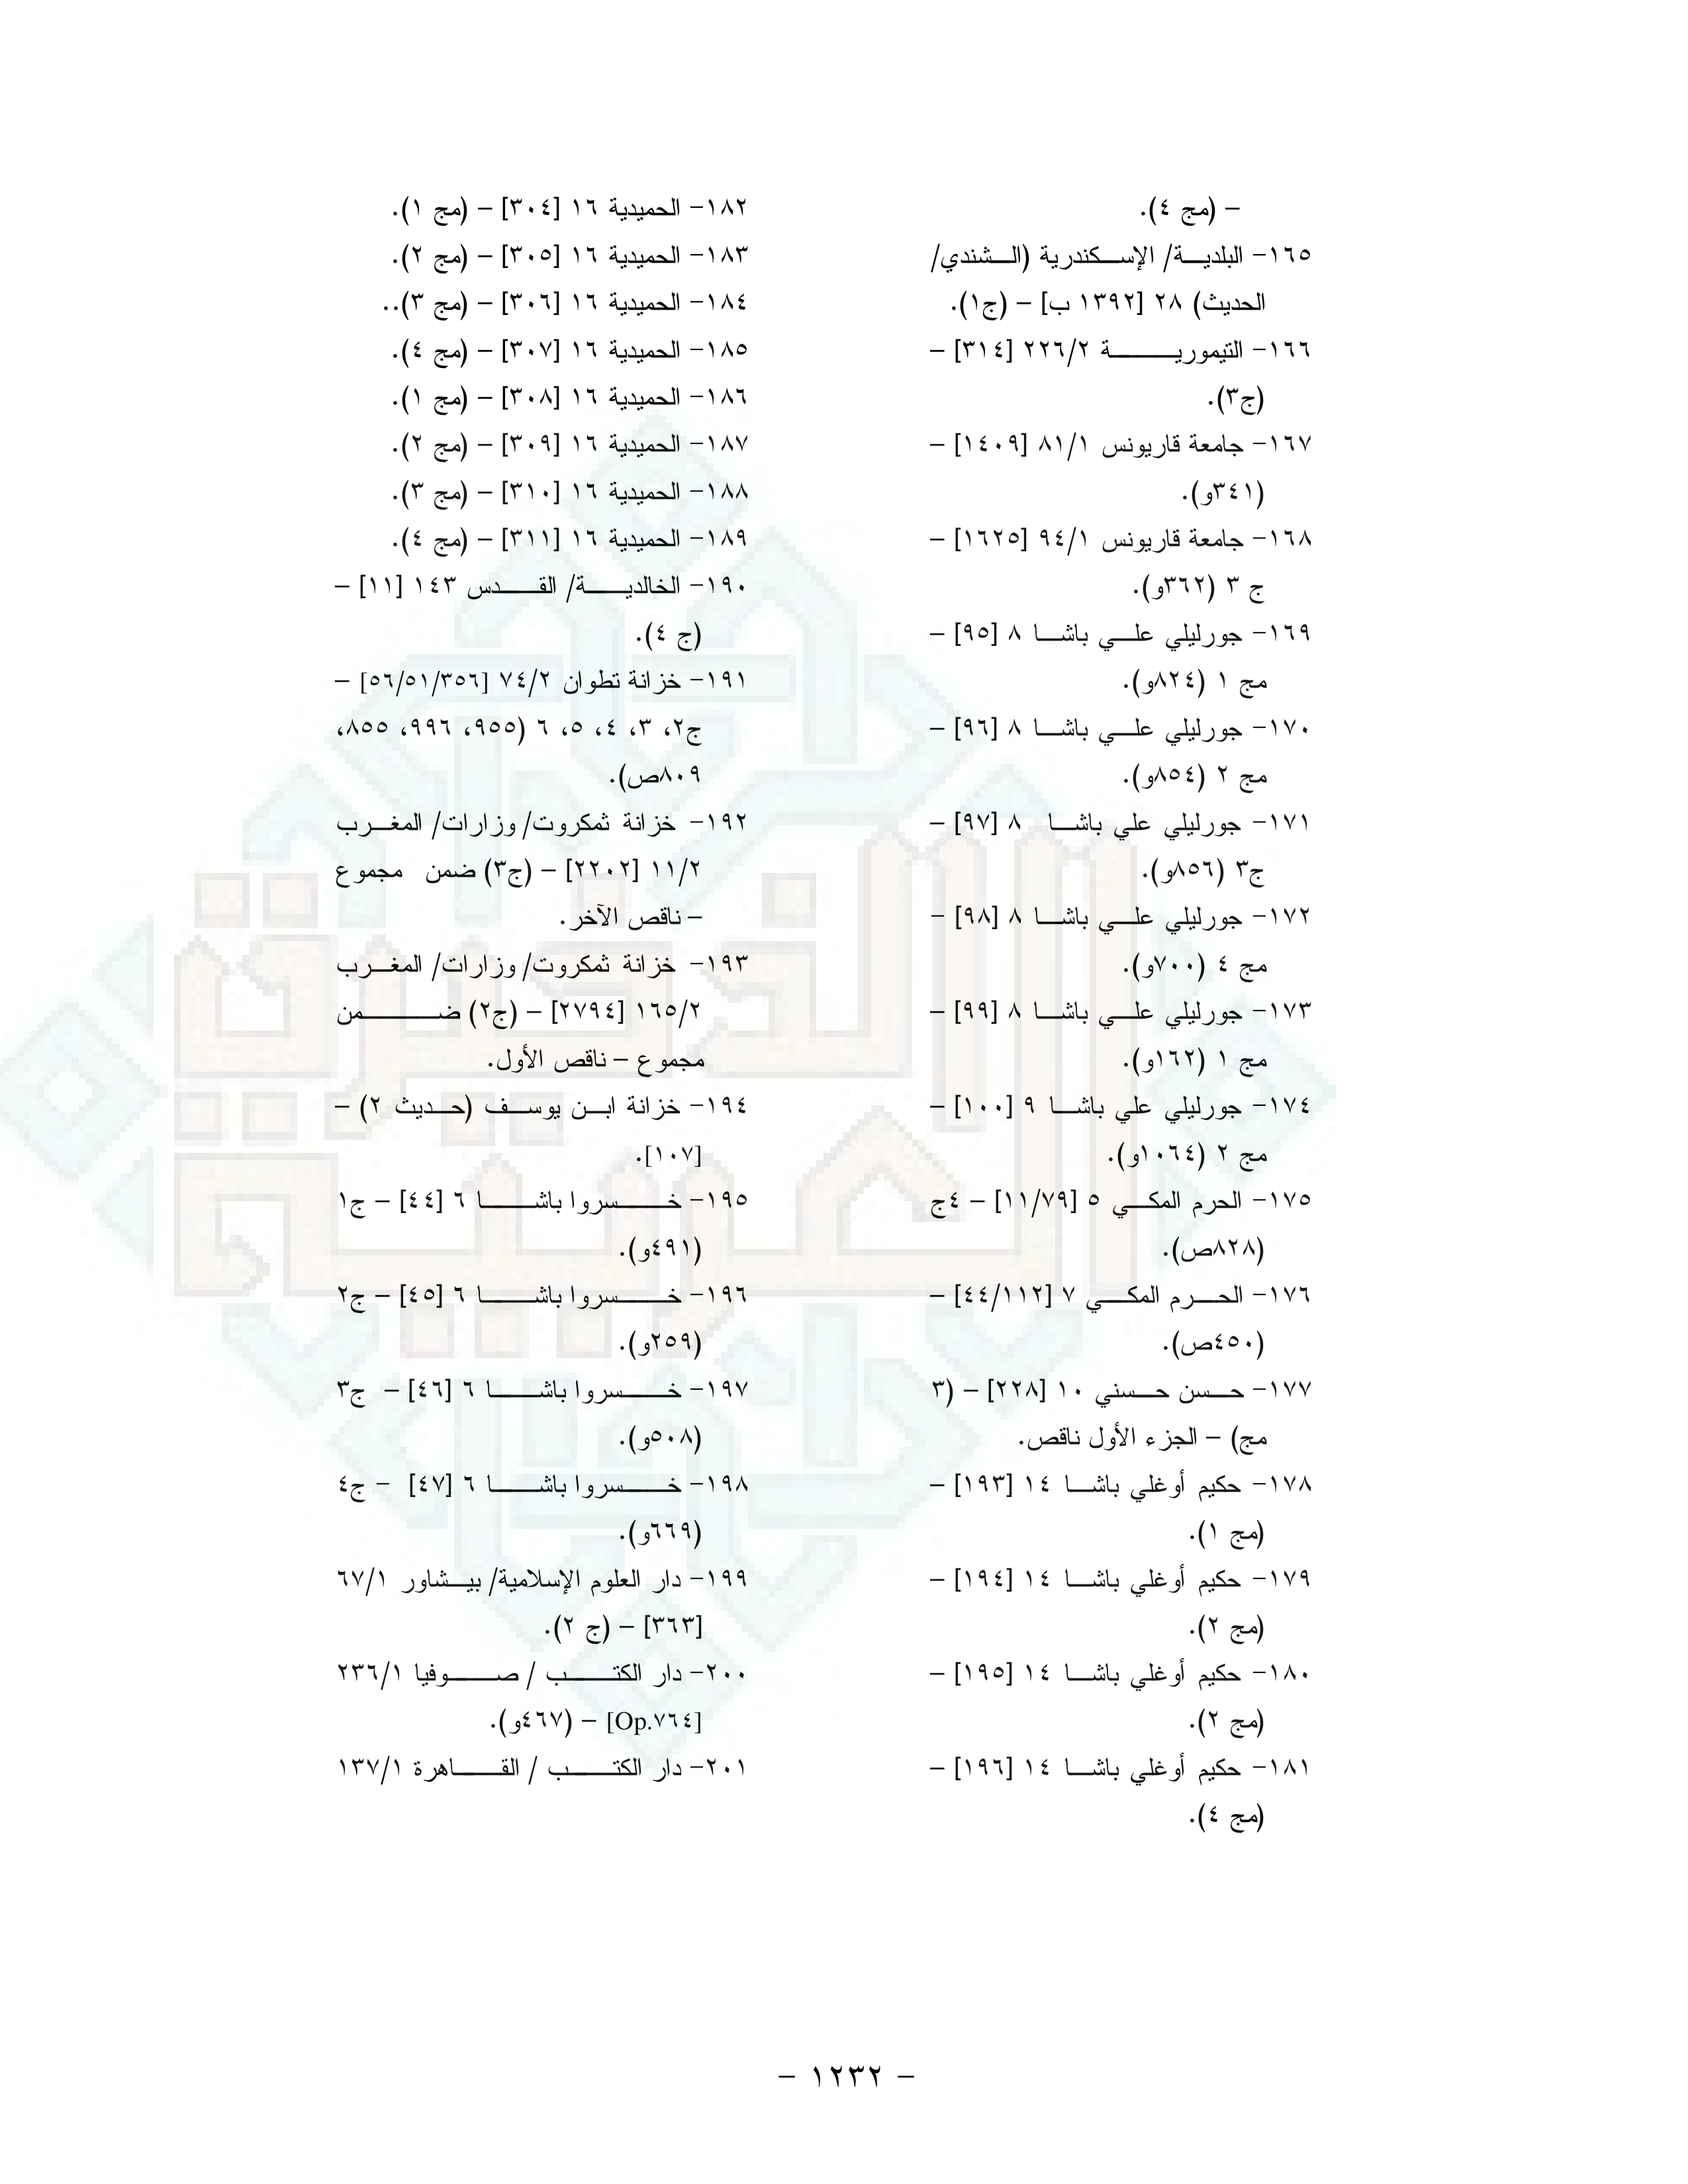 – (مج ٤).
١٦٥- البلدية/ الإسكندرية (الشندي/
الحديث) ٢٨ [١٣٩٢ ب] – (ج١).
١٦٦- التيمورية ٢٢٦/٢ [٣١٤] –
(ج٣).
١٦٧- جامعة قاريونس ٨١/١ [١٤٠٩] –
(٣٤١و).
١٦٨- جامعة قاريونس ٩٤/١ [١٦٢٥] –
ج ٣ (٣٦٢و).
١٦٩- جورليلي علي باشا ٨ [٩٥] –
مج ١ (٨٢٤و).
١٧٠- جورليلي علي باشا ٨ [٩٦] –
مج ٢ (٨٥٤و).
١٧١- جورليلي علي باشا ٨ [٩٧] –
ج٣ (٨٥٦و).
١٧٢- جورليلي علي باشا ٨ [٩٨] -
مج ٤ (٧٠٠و).
١٧٣- جورليلي علي باشا ٨ [٩٩] –
مج ١ (١٦٢و).
١٧٤- جورليلي علي باشا ٩ [١٠٠] –
مج ٢ (١٠٦٤و).
١٧٥- الحرم المكي ٥ [١١/٧٩] – ٤ج
(٨٢٨ص).
١٧٦- الحرم المكي ٧ [٤٤/١١٢] –
(٤٥٠ص).
١٧٧- حسن حسني ١٠ [٢٢٨] – (٣
مج) – الجزء الأول ناقص.
١٧٨- حكيم أوغلي باشا ١٤ [١٩٣] –
(مج ١).
١٧٩- حكيم أوغلي باشا ١٤ [١٩٤] –
(مج ٢).
١٨٠- حكيم أوغلي باشا ١٤ [١٩٥] –
(مج ٢).
١٨١- حكيم أوغلي باشا ١٤ [١٩٦] –
(مج ٤).
١٨٢- الحميدية ١٦ [٣٠٤] – (مج ١).
١٨٣- الحميدية ١٦ [٣٠٥] – (مج ٢).
١٨٤- الحميدية ١٦ [٣٠٦] – (مج ٣)..
١٨٥- الحميدية ١٦ [٣٠٧] – (مج ٤).
١٨٦- الحميدية ١٦ [٣٠٨] – (مج ١).
١٨٧- الحميدية ١٦ [٣٠٩] – (مج ٢).
١٨٨- الحميدية ١٦ [٣١٠] – (مج ٣).
١٨٩- الحميدية ١٦ [٣١١] – (مج ٤).
١٩٠- الخالدية/ القدس ١٤٣ [١١] –
(ج ٤).
١٩١- خزانة تطوان ٧٤/٢ [٥٦/٥١/٣٥٦] –
ج٢، ٣، ٤، ٥، ٦ (٩٥٥، ٩٩٦، ٨٥٥،
٨٠٩ص).
١٩٢- خزانة ثمكروت/ وزارات/ المغرب
١١/٢ [٢٢٠٢] – (ج٣) ضمن مجموع
– ناقص الآخر.
١٩٣- خزانة ثمكروت/ وزارات/ المغرب
١٦٥/٢ [٢٧٩٤] – (ج٢) ضمن
مجموع – ناقص الأول.
١٩٤- خزانة ابن يوسف (حديث ٢) –
[١٠٧].
١٩٥- خسروا باشا ٦ [٤٤] – ج١
(٤٩١و).
١٩٦- خسروا باشا ٦ [٤٥] – ج٢
(٢٥٩و).
١٩٧- خسروا باشا ٦ [٤٦] – ج٣
(٥٠٨و).
١٩٨- خسروا باشا ٦ [٤٧] - ج٤
(٦٦٩و).
١٩٩- دار العلوم الإسلامية/ بيشاور ٦٧/١
[٣٦٣] – (ج ٢).
٢٠٠- دار الكتب / صوفيا ٢٣٦/١
[Op.٧٦٤] – (٤٦٧و).
٢٠١- دار الكتب / القاهرة ١٣٧/١
الذخيرة
العربية
– ١٢٣٢ –